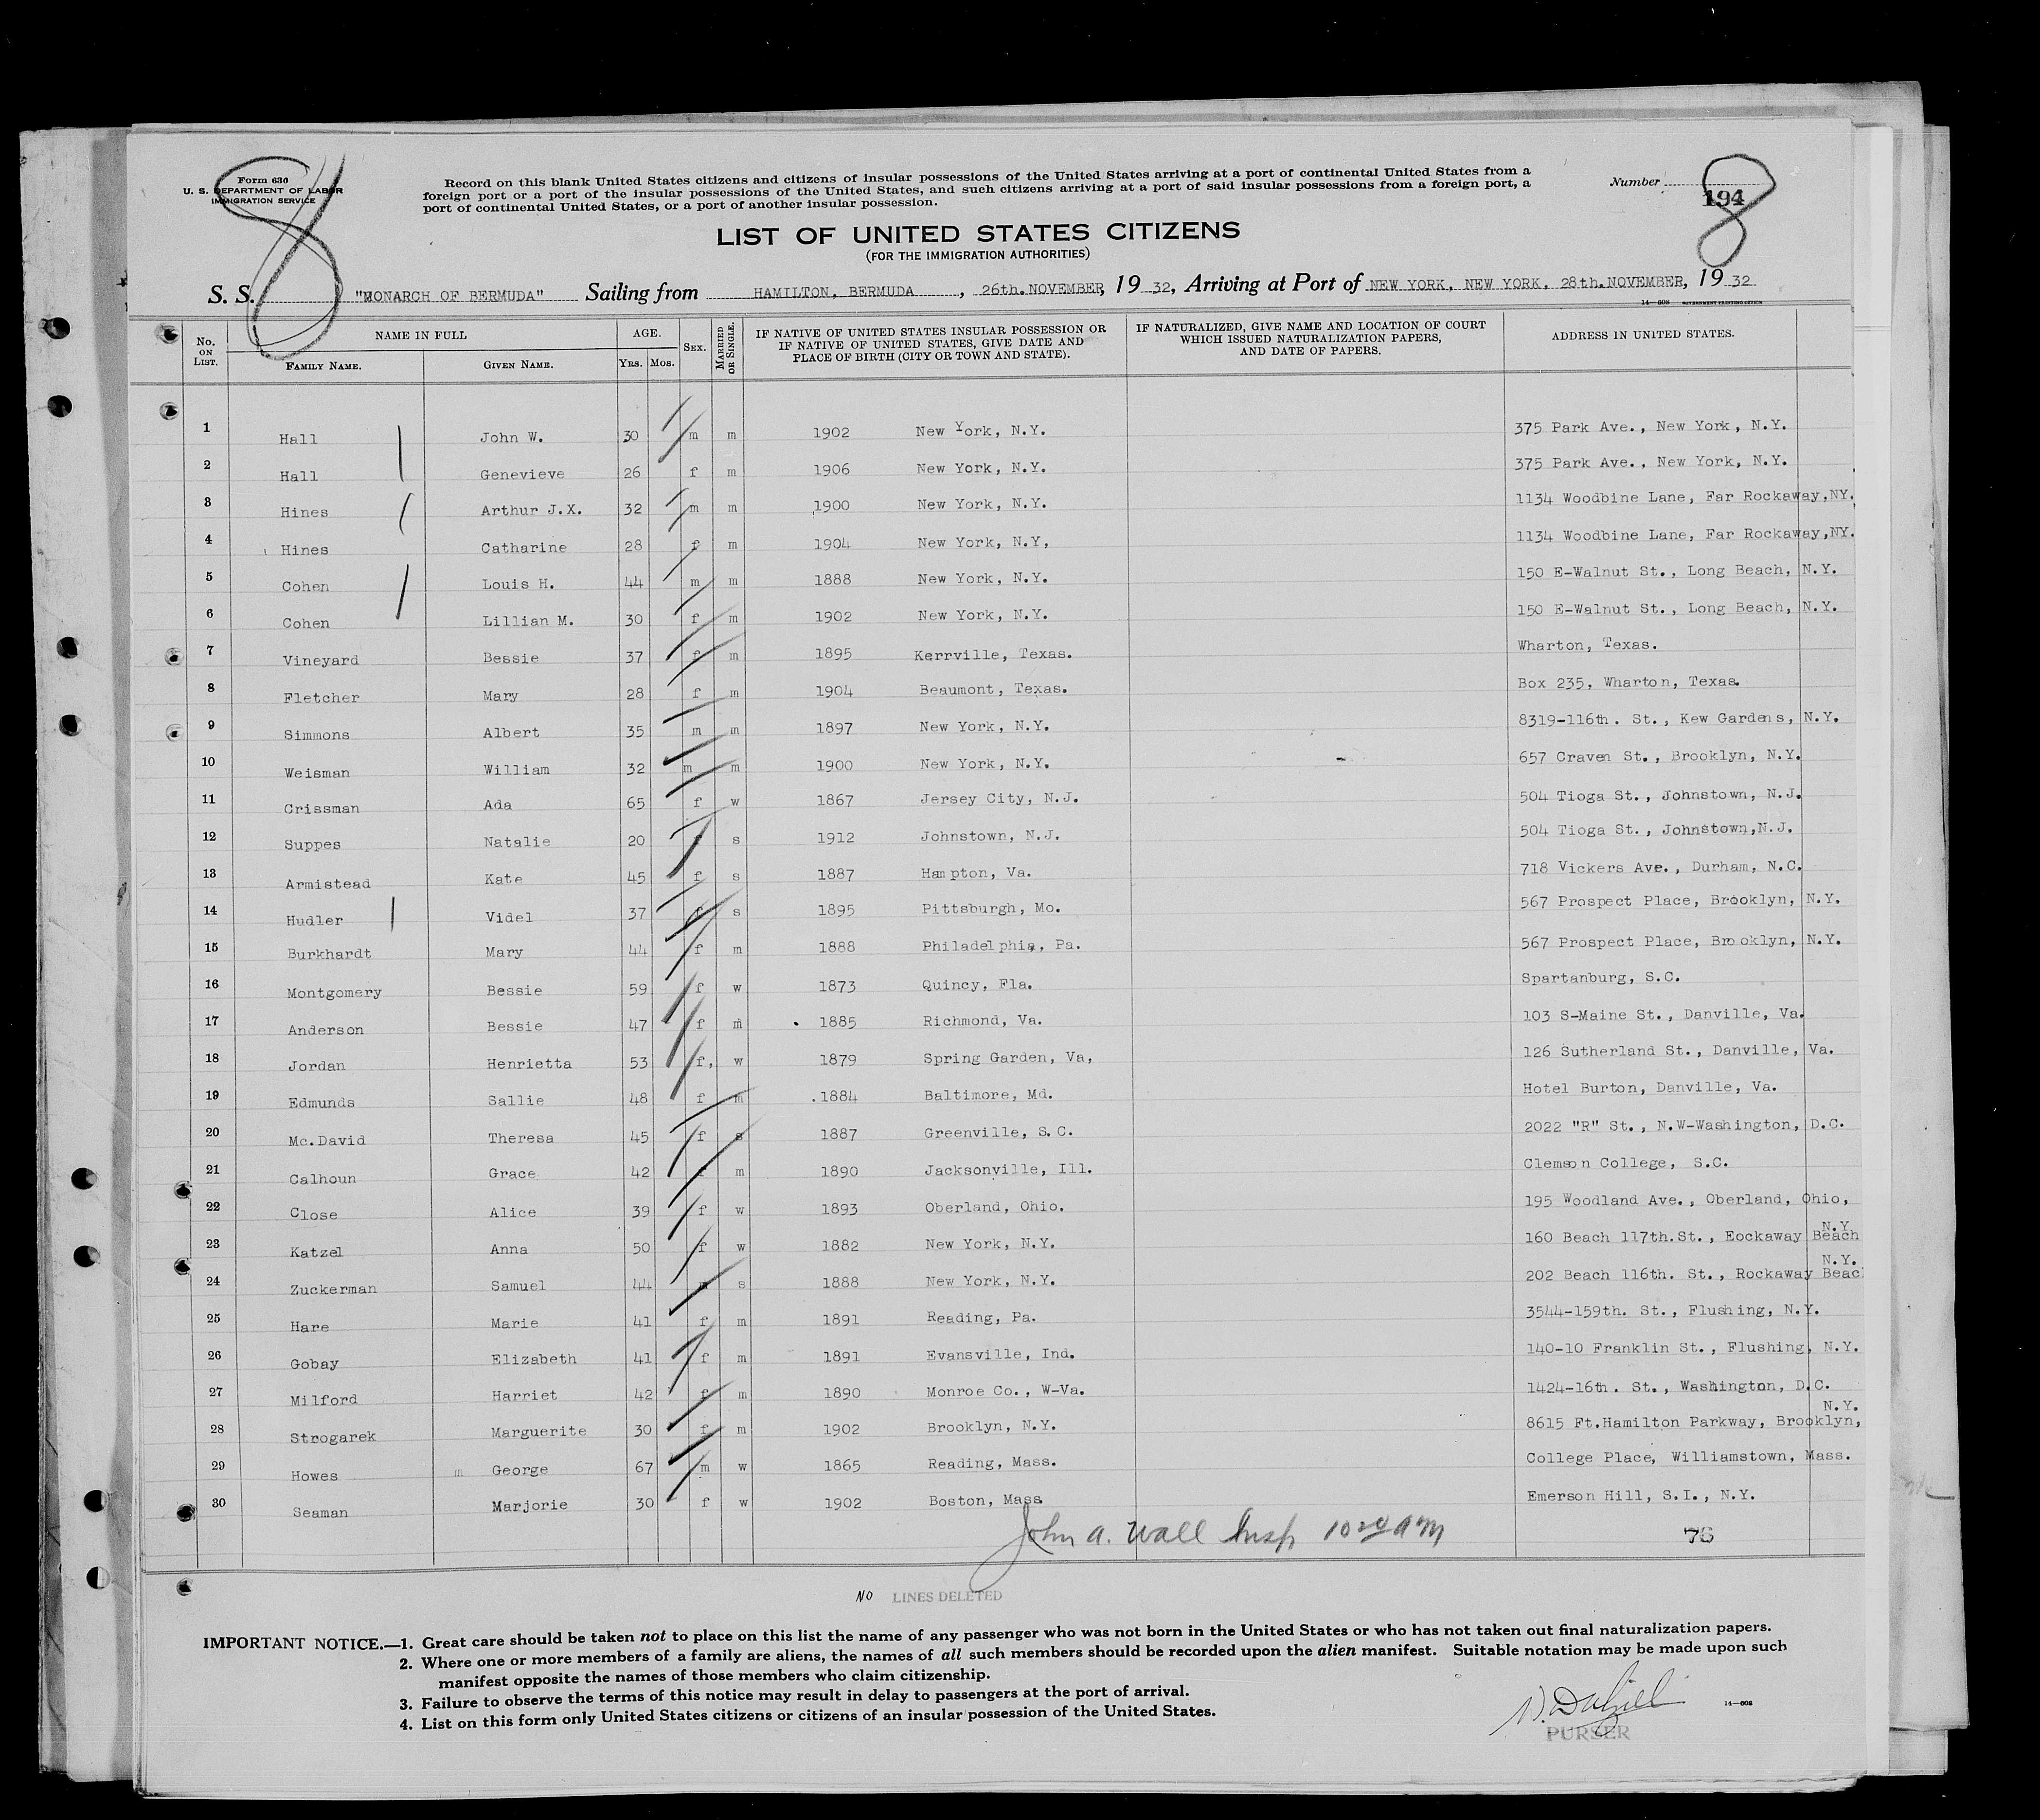 8
Form 630
U. S. DEPARTMENT OF LABOR
IMMIGRATION SERVICE
Record on this blank United States citizens and citizens of insular possessions of the United States arriving at a port of continental United States from a
foreign port or a port of the insular possessions of the United States, and such citizens arriving at a port of said insular possessions from a foreign port, a
port of continental United States, or a port of another insular possession.
Number
194
8
LIST OF UNITED STATES CITIZENS
(FOR THE IMMIGRATION AUTHORITIES)
S. S. "MONARCH OF BERMUDA" Sailing from HAMILTON, BERMUDA , 26th.NOVEMBER, 19 32, Arriving at Port of NEW YORK, NEW YORK, 28th.NOVEMBER, 19 32
14—608 GOVERNMENT PRINTING OFFICE
No. ON LIST. NAME IN FULL AGE. SEX. MARRIED OR SINGLE. IF NATIVE OF UNITED STATES INSULAR POSSESSION OR IF NATIVE OF UNITED STATES, GIVE DATE AND PLACE OF BIRTH (CITY OR TOWN AND STATE). IF NATURALIZED, GIVE NAME AND LOCATION OF COURT WHICH ISSUED NATURALIZATION PAPERS, AND DATE OF PAPERS. ADDRESS IN UNITED STATES.
FAMILY NAME. GIVEN NAME. YRS. MOS.
1 Hall John W. 30 m m 1902 New York, N.Y. 375 Park Ave., New York, N.Y.
2 Hall Genevieve 26 f m 1906 New York, N.Y. 375 Park Ave., New York, N.Y.
3 Hines Arthur J.X. 32 m m 1900 New York, N.Y. 1134 Woodbine Lane, Far Rockaway,NY.
4 Hines Catharine 28 f m 1904 New York, N.Y, 1134 Woodbine Lane, Far Rockaway,NY.
5 Cohen Louis H. 44 m m 1888 New York, N.Y. 150 E-Walnut St., Long Beach, N.Y.
6 Cohen Lillian M. 30 f m 1902 New York, N.Y. 150 E-Walnut St., Long Beach, N.Y.
7 Vineyard Bessie 37 f m 1895 Kerrville, Texas. Wharton, Texas.
8 Fletcher Mary 28 f m 1904 Beaumont, Texas. Box 235, Wharton, Texas.
9 Simmons Albert 35 m m 1897 New York, N.Y. 8319-116th. St., Kew Gardens, N.Y.
10 Weisman William 32 m m 1900 New York, N.Y. 657 Craven St., Brooklyn, N.Y.
11 Crissman Ada 65 f w 1867 Jersey City, N.J. 504 Tioga St., Johnstown, N.J.
12 Suppes Natalie 20 f s 1912 Johnstown, N.J. 504 Tioga St., Johnstown,N.J.
13 Armistead Kate 45 f s 1887 Hampton, Va. 718 Vickers Ave., Durham, N.C.
14 Hudler Videl 37 f s 1895 Pittsburgh, Mo. 567 Prospect Place, Brooklyn, N.Y.
15 Burkhardt Mary 44 f m 1888 Philadelphia, Pa. 567 Prospect Place, Brooklyn, N.Y.
16 Montgomery Bessie 59 f w 1873 Quincy, Fla. Spartanburg, S.C.
17 Anderson Bessie 47 f m 1885 Richmond, Va. 103 S-Maine St., Danville, Va.
18 Jordan Henrietta 53 f, w 1879 Spring Garden, Va, 126 Sutherland St., Danville, Va.
19 Edmunds Sallie 48 f m .1884 Baltimore, Md. Hotel Burton, Danville, Va.
20 Mc.David Theresa 45 f s 1887 Greenville, S.C. 2022 "R" St., N.W-Washington, D.C.
21 Calhoun Grace 42 f m 1890 Jacksonville, Ill. Clemson College, S.C.
22 Close Alice 39 f w 1893 Oberland, Ohio. 195 Woodland Ave., Oberland, Ohio,
23 Katzel Anna 50 f w 1882 New York, N.Y. 160 Beach 117th.St., Eockaway Beach N.Y.
24 Zuckerman Samuel 44 m s 1888 New York, N.Y. 202 Beach 116th. St., Rockaway Beac N.Y.
25 Hare Marie 41 f m 1891 Reading, Pa. 3544-159th. St., Flushing, N.Y.
26 Gobay Elizabeth 41 f m 1891 Evansville, Ind. 140-10 Franklin St., Flushing, N.Y.
27 Milford Harriet 42 f m 1890 Monroe Co., W-Va. 1424-16th. St., Washington, D.C.
28 Strogarek Marguerite 30 f m 1902 Brooklyn, N.Y. 8615 Ft.Hamilton Parkway, Brooklyn, N.Y.
29 Howes m George 67 m w 1865 Reading, Mass. College Place, Williamstown, Mass.
30 Seaman Marjorie 30 f w 1902 Boston, Mass Emerson Hill, S.I., N.Y.
John A. Wall Insp 10 20 AM
76
NO LINES DELETED
IMPORTANT NOTICE.—1. Great care should be taken not to place on this list the name of any passenger who was not born in the United States or who has not taken out final naturalization papers.
2. Where one or more members of a family are aliens, the names of all such members should be recorded upon the alien manifest. Suitable notation may be made upon such
manifest opposite the names of those members who claim citizenship.
3. Failure to observe the terms of this notice may result in delay to passengers at the port of arrival.
4. List on this form only United States citizens or citizens of an insular possession of the United States.
14—608
PURSER